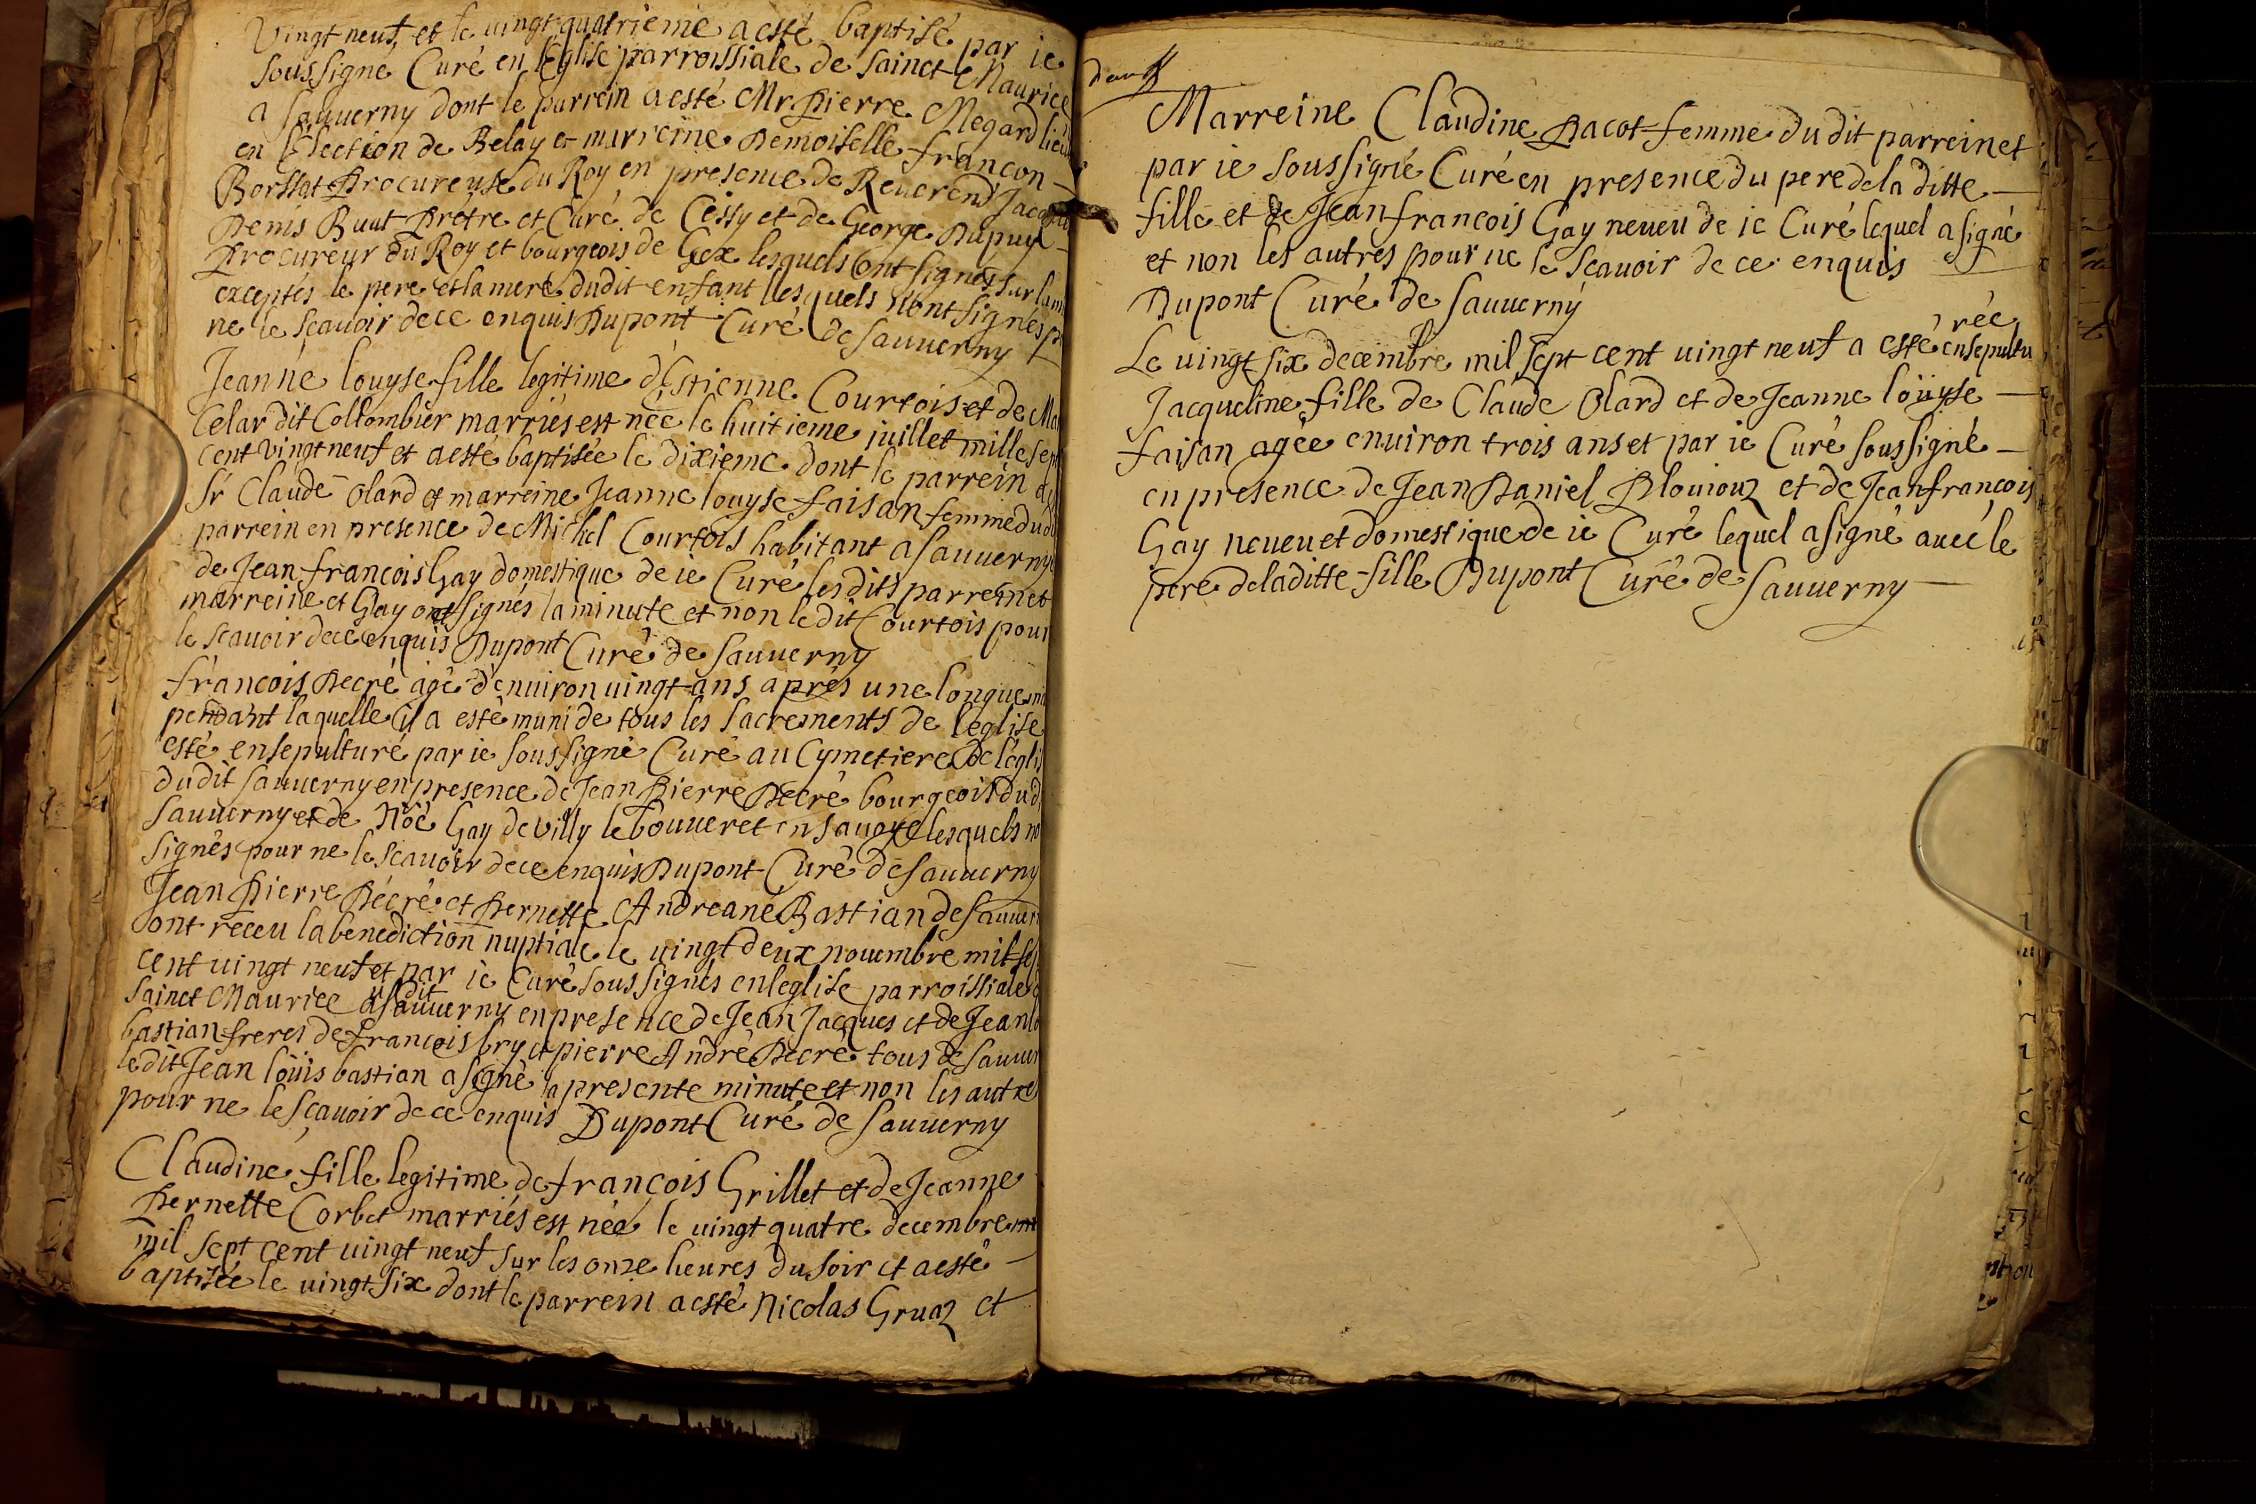 Vingt neuf, et le uingt quatrieme a esté baptisé par ie
soussigné Curé en l'Eglise parroissiale de sainct Maurice
a sauuerny dont le parrein a esté Mr Pierre Megard lieu
en l'élection de Belay et marreine Demoiselle francon
Borssat Procureuse du Roy en presence de Reuerend Jacque
Denis Buat Prêtre et Curé de Cessy et de George Dupuy
Procureur du Roy et bourgeois de Gex lesquels ont signés sur la mi
exceptés le pere et la mere dudit enfant lesquels n'ont signés p
ne le scauoir de ce enquis Dupont Curé de sauuerny
Jeanne louyse fille legitime d'Estienne Courtois et de Ma
Celar dit Collombier marriés est née le huitieme juillet mille sept
cent vingt neuf et a esté baptisée le dixieme dont le parrein a
Sr Claude olard et marreine Jeanne louyse faisan femme dud
parrein en presence de Michel Courtois habitant a sauuerny
de Jean francois Gay domestique de ie Curé lesdits parrein et
marreine et Gay ont signés la minute et non ledit Courtois pour
le scauoir de ce enquis Dupont Curé de sauuerny
francois Decré agé d'enuiron uingt ans aprés une longue m
pendant laquelle il a esté muni de tous les sacrements de l'eglise
esté ensepulturé par ie soussigné Curé au Cymetiere de l'égli
dudit sauuerny en presence de Jean Pierre Decré bourgeois dud
sauuerny et de Noé Gay de villy le bouueret en sauoye lesquels n
signés pour ne le scauoir de ce enquis Dupont Curé de sauuerny
Jean Pierre Décré et Pernette Andreane Bastian de sauuern
ont receu la benediction nuptiale le uingt deux nouembre mil sep
cent uingt neuf et par ie Curé soussignés en l'eglise parroissiale
sainct Maurice audit sauuerny en presence de Jean Jacques et de Jean lo
bastian freres de francois bry et pierre André Decré tous de sauuer
ledit Jean loüis bastian a signé la presente minute et non les autres
pour ne le scauoir de ce enquis Dupont Curé de sauuerny
Claudine fille legitime de francois Grillet et de Jeanne
Pernette Corbet marriés est née le uingt quatre decembre
mil sept cent uingt neuf sur les onze heures du soir et a esté
baptisée le uingt six dont le parrein a esté Nicolas Gruaz et
Marreine Claudine Pacot femme du dit parrein et
par ie soussigné Curé en presence du pere de la ditte
fille et de Jean francois Gay neueu de ie Curé lequel a signé
et non les autres pour ne le scauoir de ce enquis
Dupont Curé de sauuerny
Le uingt six decembre mil sept cent uingt neuf a esté ensepultu
rée
Jacqueline fille de Claude Olard et de Jeanne loüyse
faisan agée enuiron trois ans et par ie Curé soussigné
en presence de Jean Daniel Blouiouz et de Jean francois
Gay neueu et domestique de ie Curé lequel a signé auec le
pere de la ditte fille Dupont Curé de sauuerny